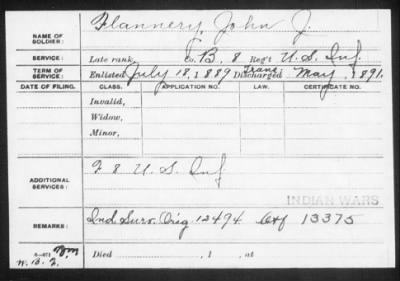 NAME OF SOLDIER: Flannery, John J.
SERVICE: Late rank, Co. B, 8 Reg't U.S. Inf.
TERM OF SERVICE: Enlisted July 18, 1889 Discharged Trans. May, 1891.
DATE OF FILING. CLASS. APPLICATION NO. LAW. CERTIFICATE NO.
Invalid,
Widow,
Minor,
ADDITIONAL SERVICES: F 8 U.S. Inf
INDIAN WARS
REMARKS: Ind Surv. Orig 12494 Ctf 13375
Died , 1 , at